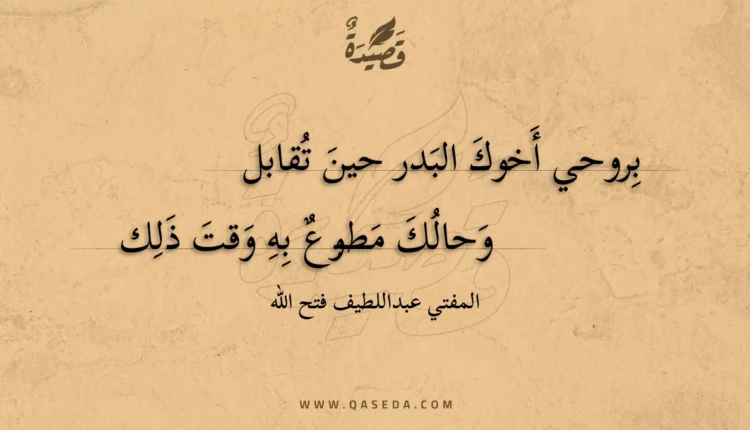 قَصِيدَةٌ
بِروحي أَخوكَ البَدر حينَ تُقابل
وَحالُكَ مَطوعٌ بِهِ وَقتَ ذَلِك
المفتي عبداللطيف فتح الله
WWW.QASEDA.COM